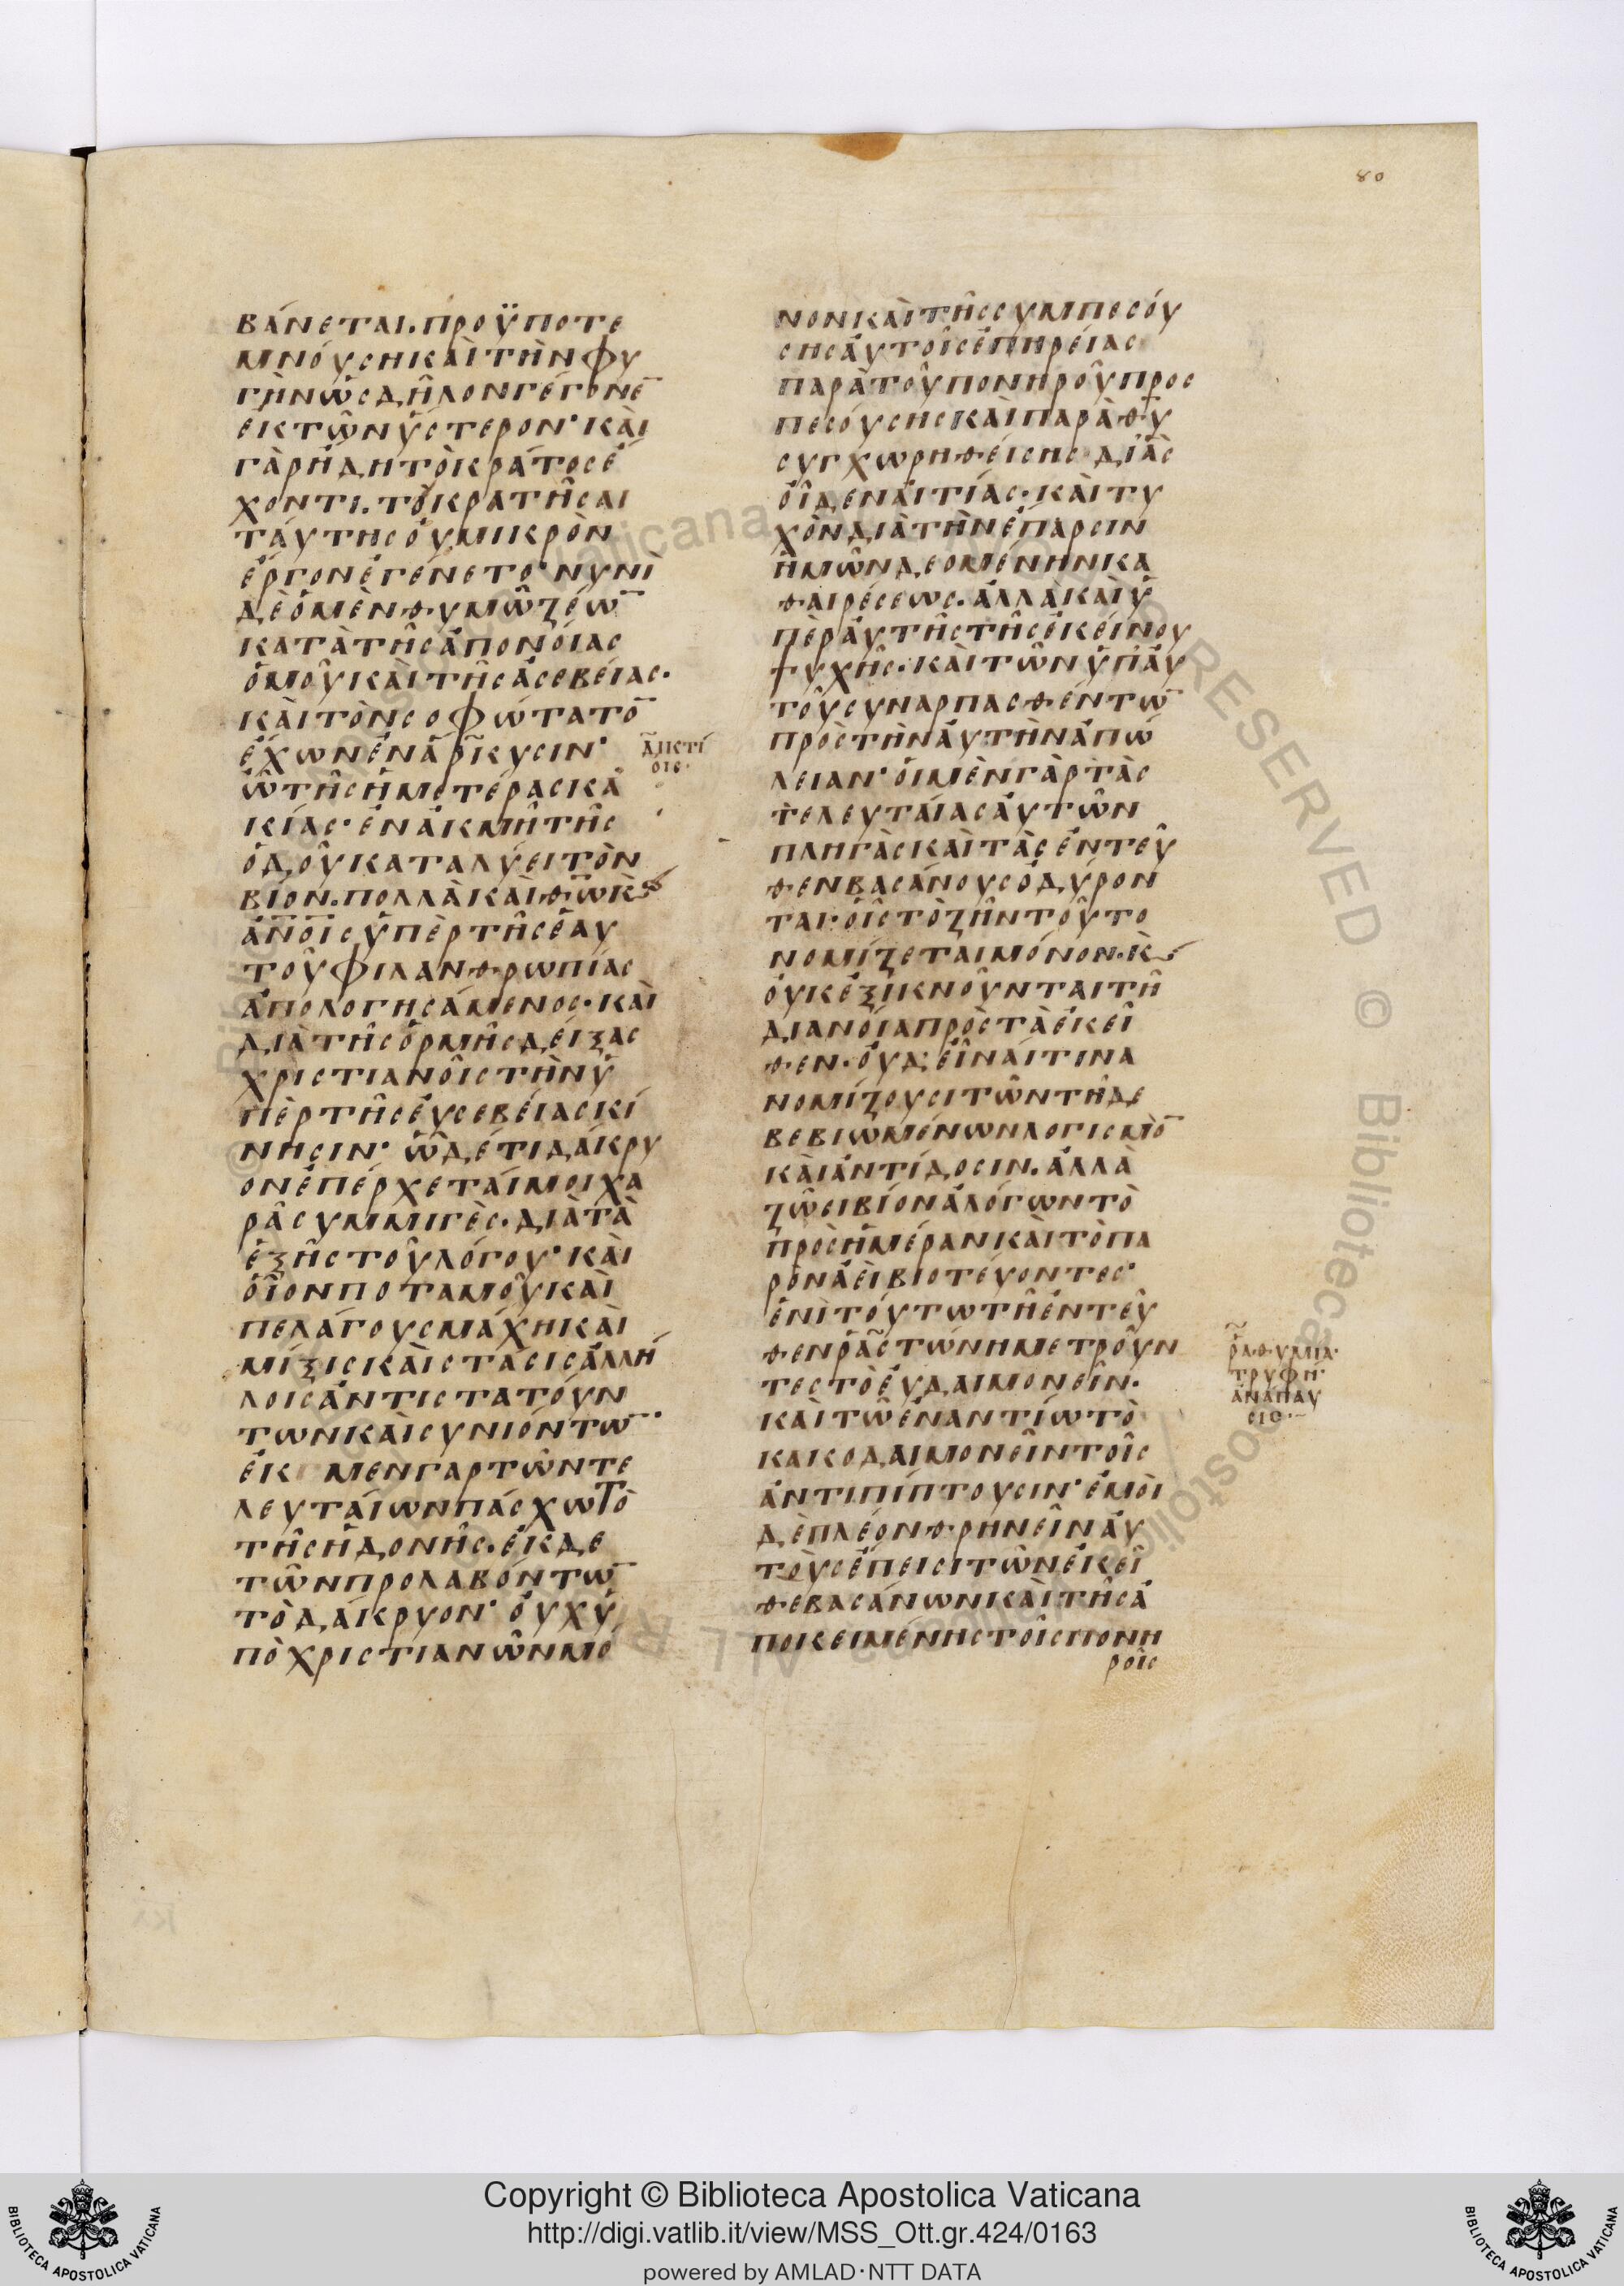 80
βάνεται. προϋποτε
μνούσηκαὶτὴνφυ
γὴνὡσδῆλονγέγονε̄
ἐκτῶνὕστερον· καὶ
γὰρἤδητὸκράτοσἔ
χοντι. τὸκρατῆσαι
ταύτησοὐμικρὸν
ἔργονἐγένετο· νυνὶ
δὲὁμὲνθυμῶζέω̄
κατὰτῆσἀπονοίασ
ὁμοῦκαὶτῆσἀσεβείασ.
καὶτὸνσοφώτατο̄
ἔχωνἐνἄρκυσιν·
ὢτῆσἡμετέρασκα
κίασ· ἐνἀκμῆτῆσ
ὁδοῦκαταλύειτὸν
βίον. πολλὰκαὶθω̄κ̀
ἀν̄οισὑπὲρτῆσἑαυ
τοῦφιλανθρωπίασ
ἀπολογησάμενοσ· καὶ
διὰτῆσὁρμῆσδείξασ
χριστιανοῖστὴνὑ
πὲρτῆσεὐσεβείασκί
νησιν· ὧδ,ἔτιδάκρυ
ονἐπέρχεταίμοιχα
ρᾶσυμμιγὲσ. διὰτὰ
ἑξῆστοῦλόγου· καὶ
οἷονποταμοῦκαὶ
πελάγουσμάχηκαὶ
μίξισκαὶστάσισἀλλή
λοισἀντιστατούν
τωνκαὶσυνιόντω̄·
ἐκ μενγαρτῶντε
λευταίωνπάσχωτὸ
τῆσἡδονῆσ. ἐκδε
τῶνπρολαβόντω̄
τὸδάκρυον· οὐχὑ
πὸχριστιανῶνμό
ἄρκτί
οισ·
νονκαὶτῆσσυμπεσού
σησαὐτοῖσἐπηρείασ
παρὰτοῦπονηροῦπροσ
πεσούσησκαὶπαρὰθ̄υ
συγχωρηθείσησ διὰσ
οἶδεναἰτίασ. καὶτυ
χὸνδιὰτὴνἔπαρσιν
ἡμῶνδεομένηνκα
θαιρέσεωσ. ἀλλὰκαὶὑ
πὲραὐτῆστῆσἐκείνου
ψυχῆσ. καὶτῶνὑπ'αὐ
τοῦσυναρπασθέντω̄
πρὸστὴναὐτὴνἀπώ
λειαν· οἱμὲνγὰρτὰσ
τελευταίασαὐτῶν
πληγὰσκαὶτὰσἐντεῦ
θενβασάνουσὀδύρον
ται· οἷστὸζῆντοῦτο
νομίζεταιμόνον. κ̀
οὐκἐξικνοῦνταιτῆ
διανοίαπρὸστὰἐκεῖ
θεν. οὐδ,εἶναίτινα
νομίζουσιτῶντῆδε
βεβιωμένωνλογισμο̄
καὶἀντίδοσιν. ἀλλὰ
ζῶσιβίονἀλόγωντὸ
πρὸσἡμέρανκαὶτὸπα
ρὸνἀεὶβιοτεύοντεσ·
ἑνὶτούτωτῆἐντεῦ
θενρᾳστώνημετροῦν
τεστὸεὐδαιμονεῖν.
καὶτῶἐναντίωτὸ
κακοδαιμονεῖντοῖσ
ἀντιπίπτουσιν· ἐμοὶ
δὲπλέονθρηνεῖναὐ
τοὺσἔπεισιτῶνἐκεῖ
θεβασάνωνκαὶτῆσἀ
ποκειμένηστοῖσπονη
ροῖσ
ῤαθυμία·
τρυφή·
ἀνάπαυ
σισ·
Copyright © Biblioteca Apostolica Vaticana
http://digi.vatlib.it/view/MSS_Ott.gr.424/0163
powered by AMLAD·NTT DATA
BIBLIOTECA APOSTOLICA VATICANA
BIBLIOTECA APOSTOLICA VATICANA